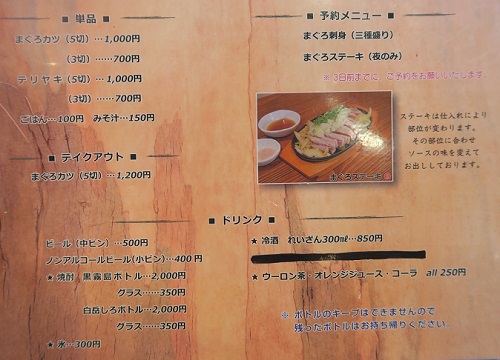 ■ 単品 ■
まぐろカツ（5切）…1,000円
（3切）……700円
テリヤキ（5切）…1,000円
（3切）……700円
ごはん…100円 みそ汁…150円
■ テイクアウト ■
まぐろカツ（5切）…1,200円
■ 予約メニュー ■
まぐろ刺身（三種盛り）
まぐろステーキ（夜のみ）
※3日前までに、ご予約をお願いいたします。
ステーキは仕入れにより
部位が変わります。
その部位に合わせ
ソースの味を変えて
お出ししております。
まぐろステーキ
■ ドリンク ■
ビール（中ビン）…500円
ノンアルコールビール(小ビン)…400円
★ 焼酎 黒霧島ボトル…2,000円
グラス……350円
白岳しろボトル…2,000円
グラス……350円
★ 氷…300円
★ 冷酒 れいざん300㎖…850円
★ ウーロン茶・オレンジジュース・コーラ all 250円
※ ボトルのキープはできませんので
残ったボトルはお持ち帰りください。